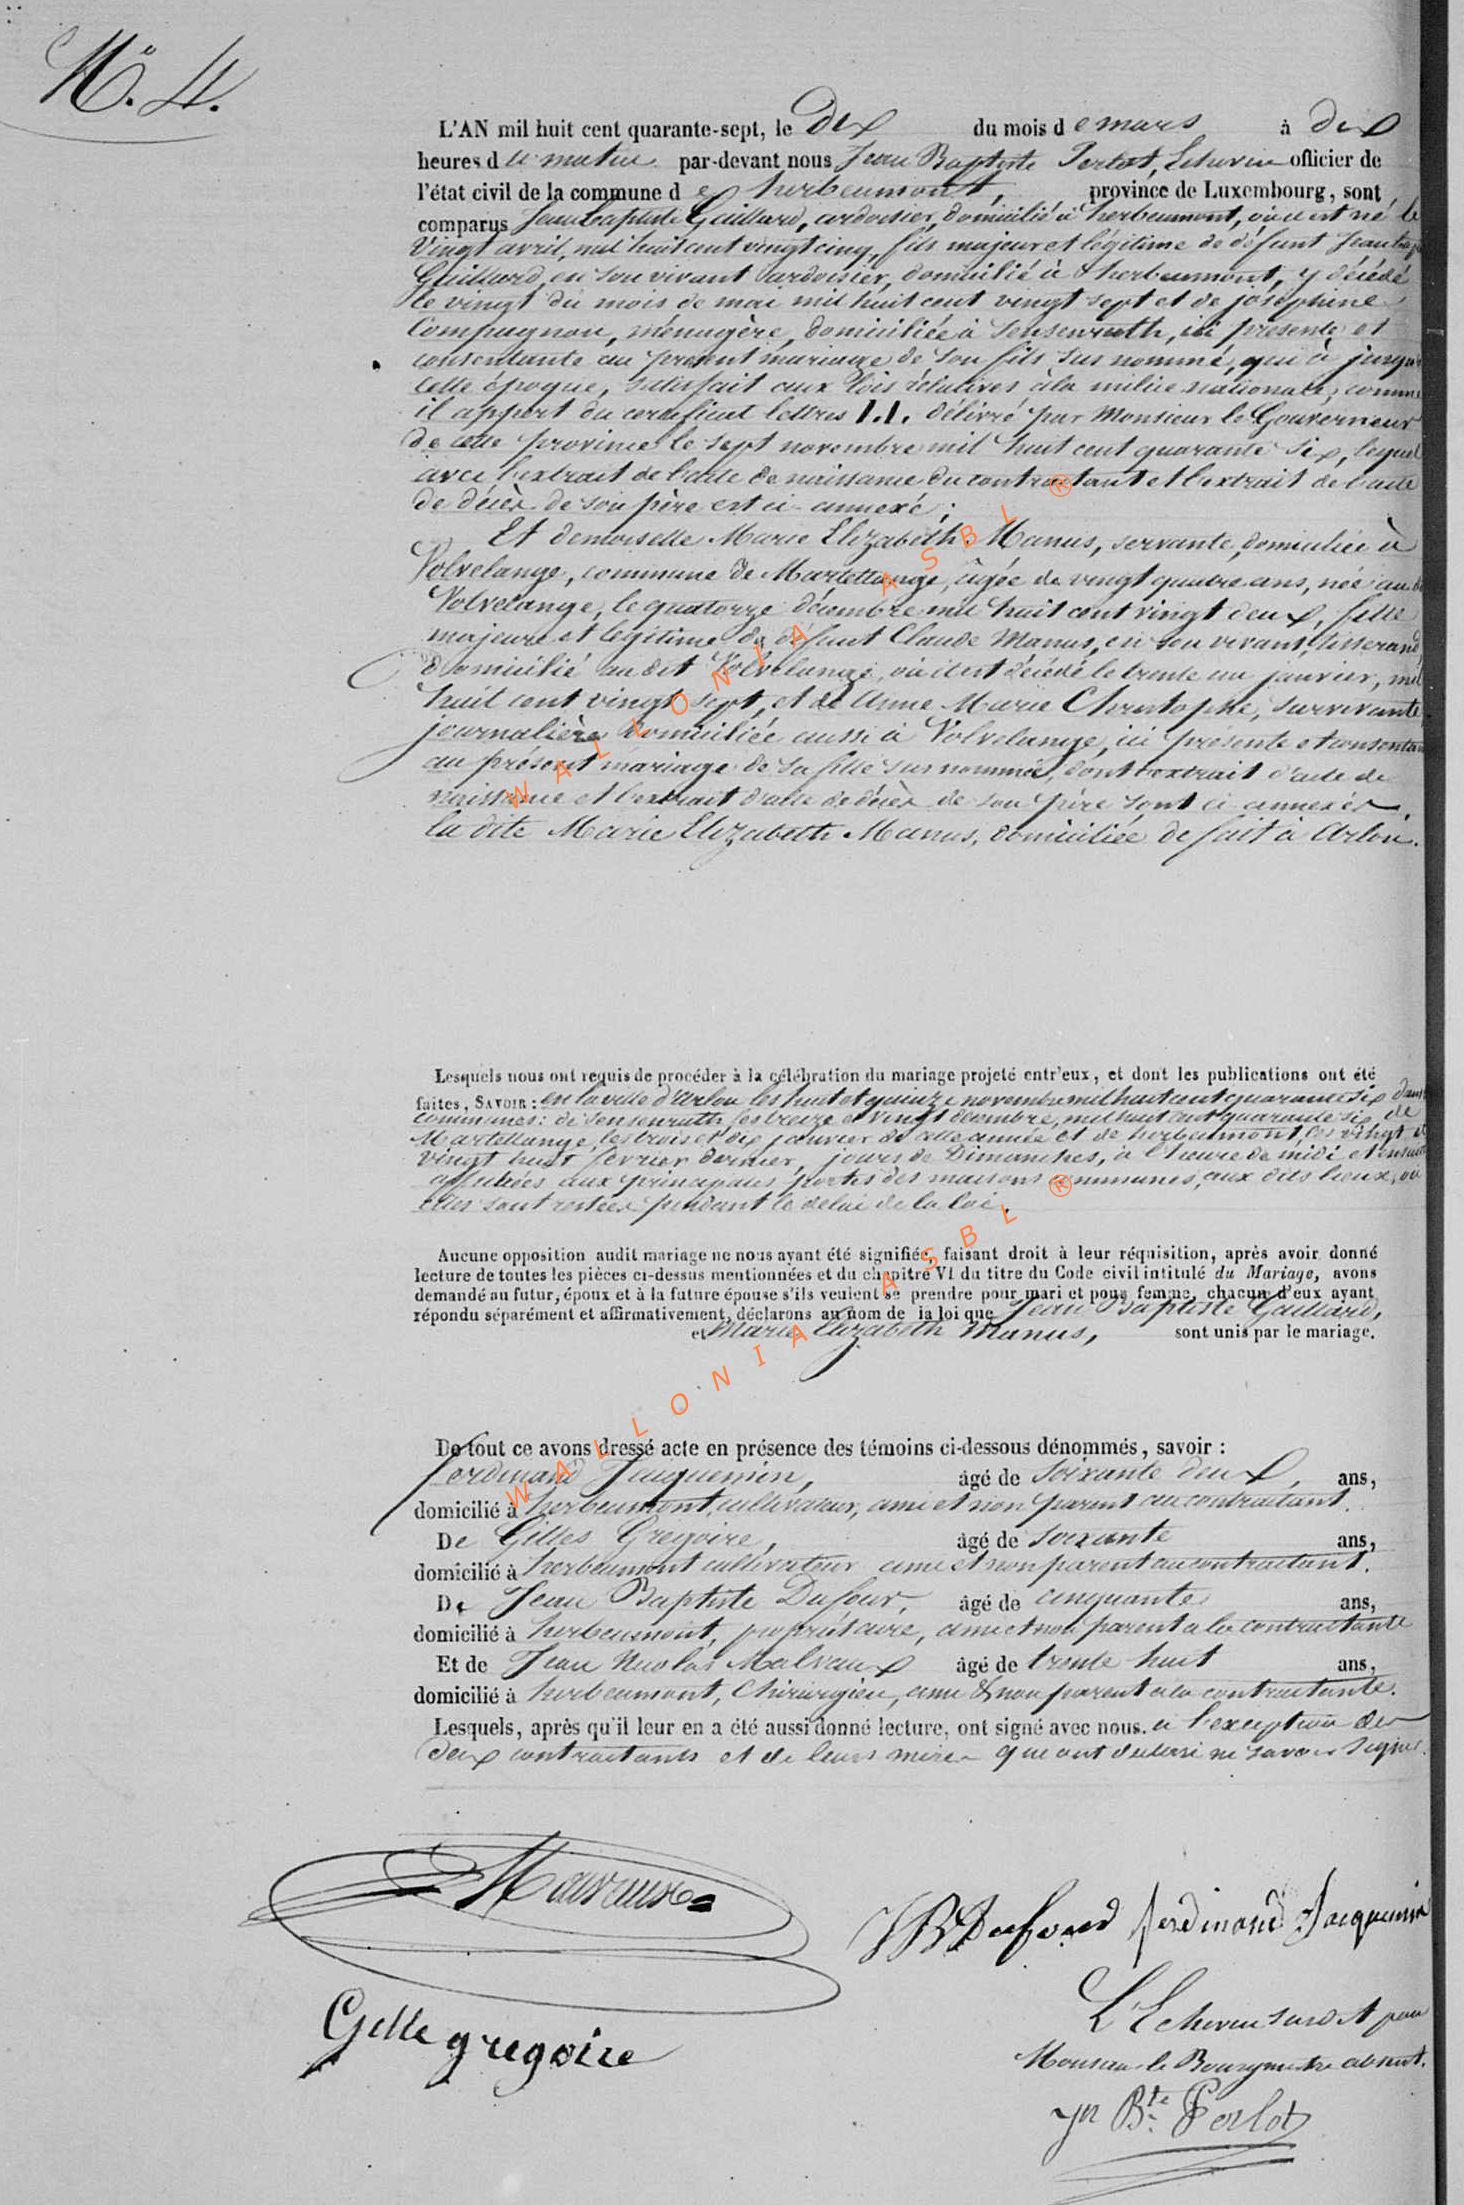 N° 4.
L'AN mil huit cent quarante-sept, le Dix du mois de mars à dix
heures du matin par-devant nous Jean Baptiste Perlot, Echevin officier de
l'état civil de la commune de herbeumont, province de Luxembourg, sont
comparus Jean baptiste Gaillard, ardoisier, domicilié à herbeumont, où il est né le
Vingt avril, mil huit cent vingt cinq, fils majeur et légitime de défunt Jean bap
Gaillard, en son vivant ardoisier, domicilié à herbeumont, y décédé
le vingt du mois de mai mil huit cent vingt sept et de joséphine
Compagnon, ménagère, domiciliée à Sensenruth, ici présente et
consentante au présent mariage de son fils sus nommé, qui à jusqu'à
cette époque, satisfait aux lois rélatives à la milice nationale, comme
il appert du certificat lettres I.I. délivré par Monsieur le Gouverneur
de cette province le sept novembre mil huit cent quarante six, lequel
avec l'extrait de l'acte de naissance du contractant et l'extrait de l'acte
de décès de son père est ci-annexé;
Et demoiselle Marie Elizabeth Manus, servante, domiciliée à
Volvelange, commune de Martellange, âgée de vingt quatre ans, née au dit
Volvelange, le quatorze décembre mil huit cent vingt deux, fille
majeure et légitime de défunt Claude Manus, en son vivant, tisserand,
domicilié au dit Volvelange, où il est décédé le trente un janvier, mil
huit cent vingt sept, et de Anne Marie Christophe, survivante,
journalière domiciliée aussi à Volvelange, ici présente et consentan
au présent mariage de sa fille sus nommée, dont l'extrait d'acte de
naissance et l'extrait d'acte de décès de son père sont ci annexés,
la dite Marie Elizabeth Manus, domiciliée de fait à Arlon.
Lesquels nous ont requis de procéder à la célébration du mariage projeté entr'eux, et dont les publications ont été
faites, SAVOIR : en la ville d'Arlon les huit et quinze novembre mil huit cent quarante six dans
communes: de Sensenruth, les treize et vingt décembre, mil huit cent quarante six, de
Martellange, les trois et dix janvier de cette année et de herbeumont, les vingt et
vingt huit fevrier dernier, jours de Dimanches, à l'heure de midi et ensuite
affichées aux principales portes des maisons communes, aux dits lieux, où
elles sont restées pendant le délai de la loi.
Aucune opposition audit mariage ne nous ayant été signifiée, faisant droit à leur réquisition, après avoir donné
lecture de toutes les pièces ci-dessus mentionnées et du chapitre VI du titre du Code civil intitulé du Mariage, avons
demandé au futur, époux et à la future épouse s'ils veulent se prendre pour mari et pour femme, chacun d'eux ayant
répondu séparément et affirmativement, déclarons au nom de la loi que Jean Baptiste Gaillard,
et Marie Elizabeth Manus, sont unis par le mariage.
De tout ce avons dressé acte en présence des témoins ci-dessous dénommés, savoir :
Ferdinand Jacquemin, âgé de Soixante deux, ans,
domicilié à herbeumont, cultivateur, ami et non parent au contractant.
De Gilles Gregoire, âgé de soixante ans,
domicilié à herbeumont cultivateur ami et non parent au contractant.
De Jean Baptiste Dufour, âgé de cinquante ans,
domicilié à herbeumont, propriétaire, ami et non parent à la contractante
Et de Jean Nicolas Malvaux âgé de trente huit ans,
domicilié à herbeumont, Chirurgien, ami & non parent à la contractante.
Lesquels, après qu'il leur en a été aussi donné lecture, ont signé avec nous. à l'exception des
deux contractants et de leurs mères qui ont déclaré ne savoir signer.
Mavaux
JB Dufour ferdinand Jacquemin
Gille gregoire
L'Echevin susdit pour
Monsieur le Bourgmestre absent.
Jn Bte Perlot
WALLONIA ASBL ®
WALLONIA ASBL ®